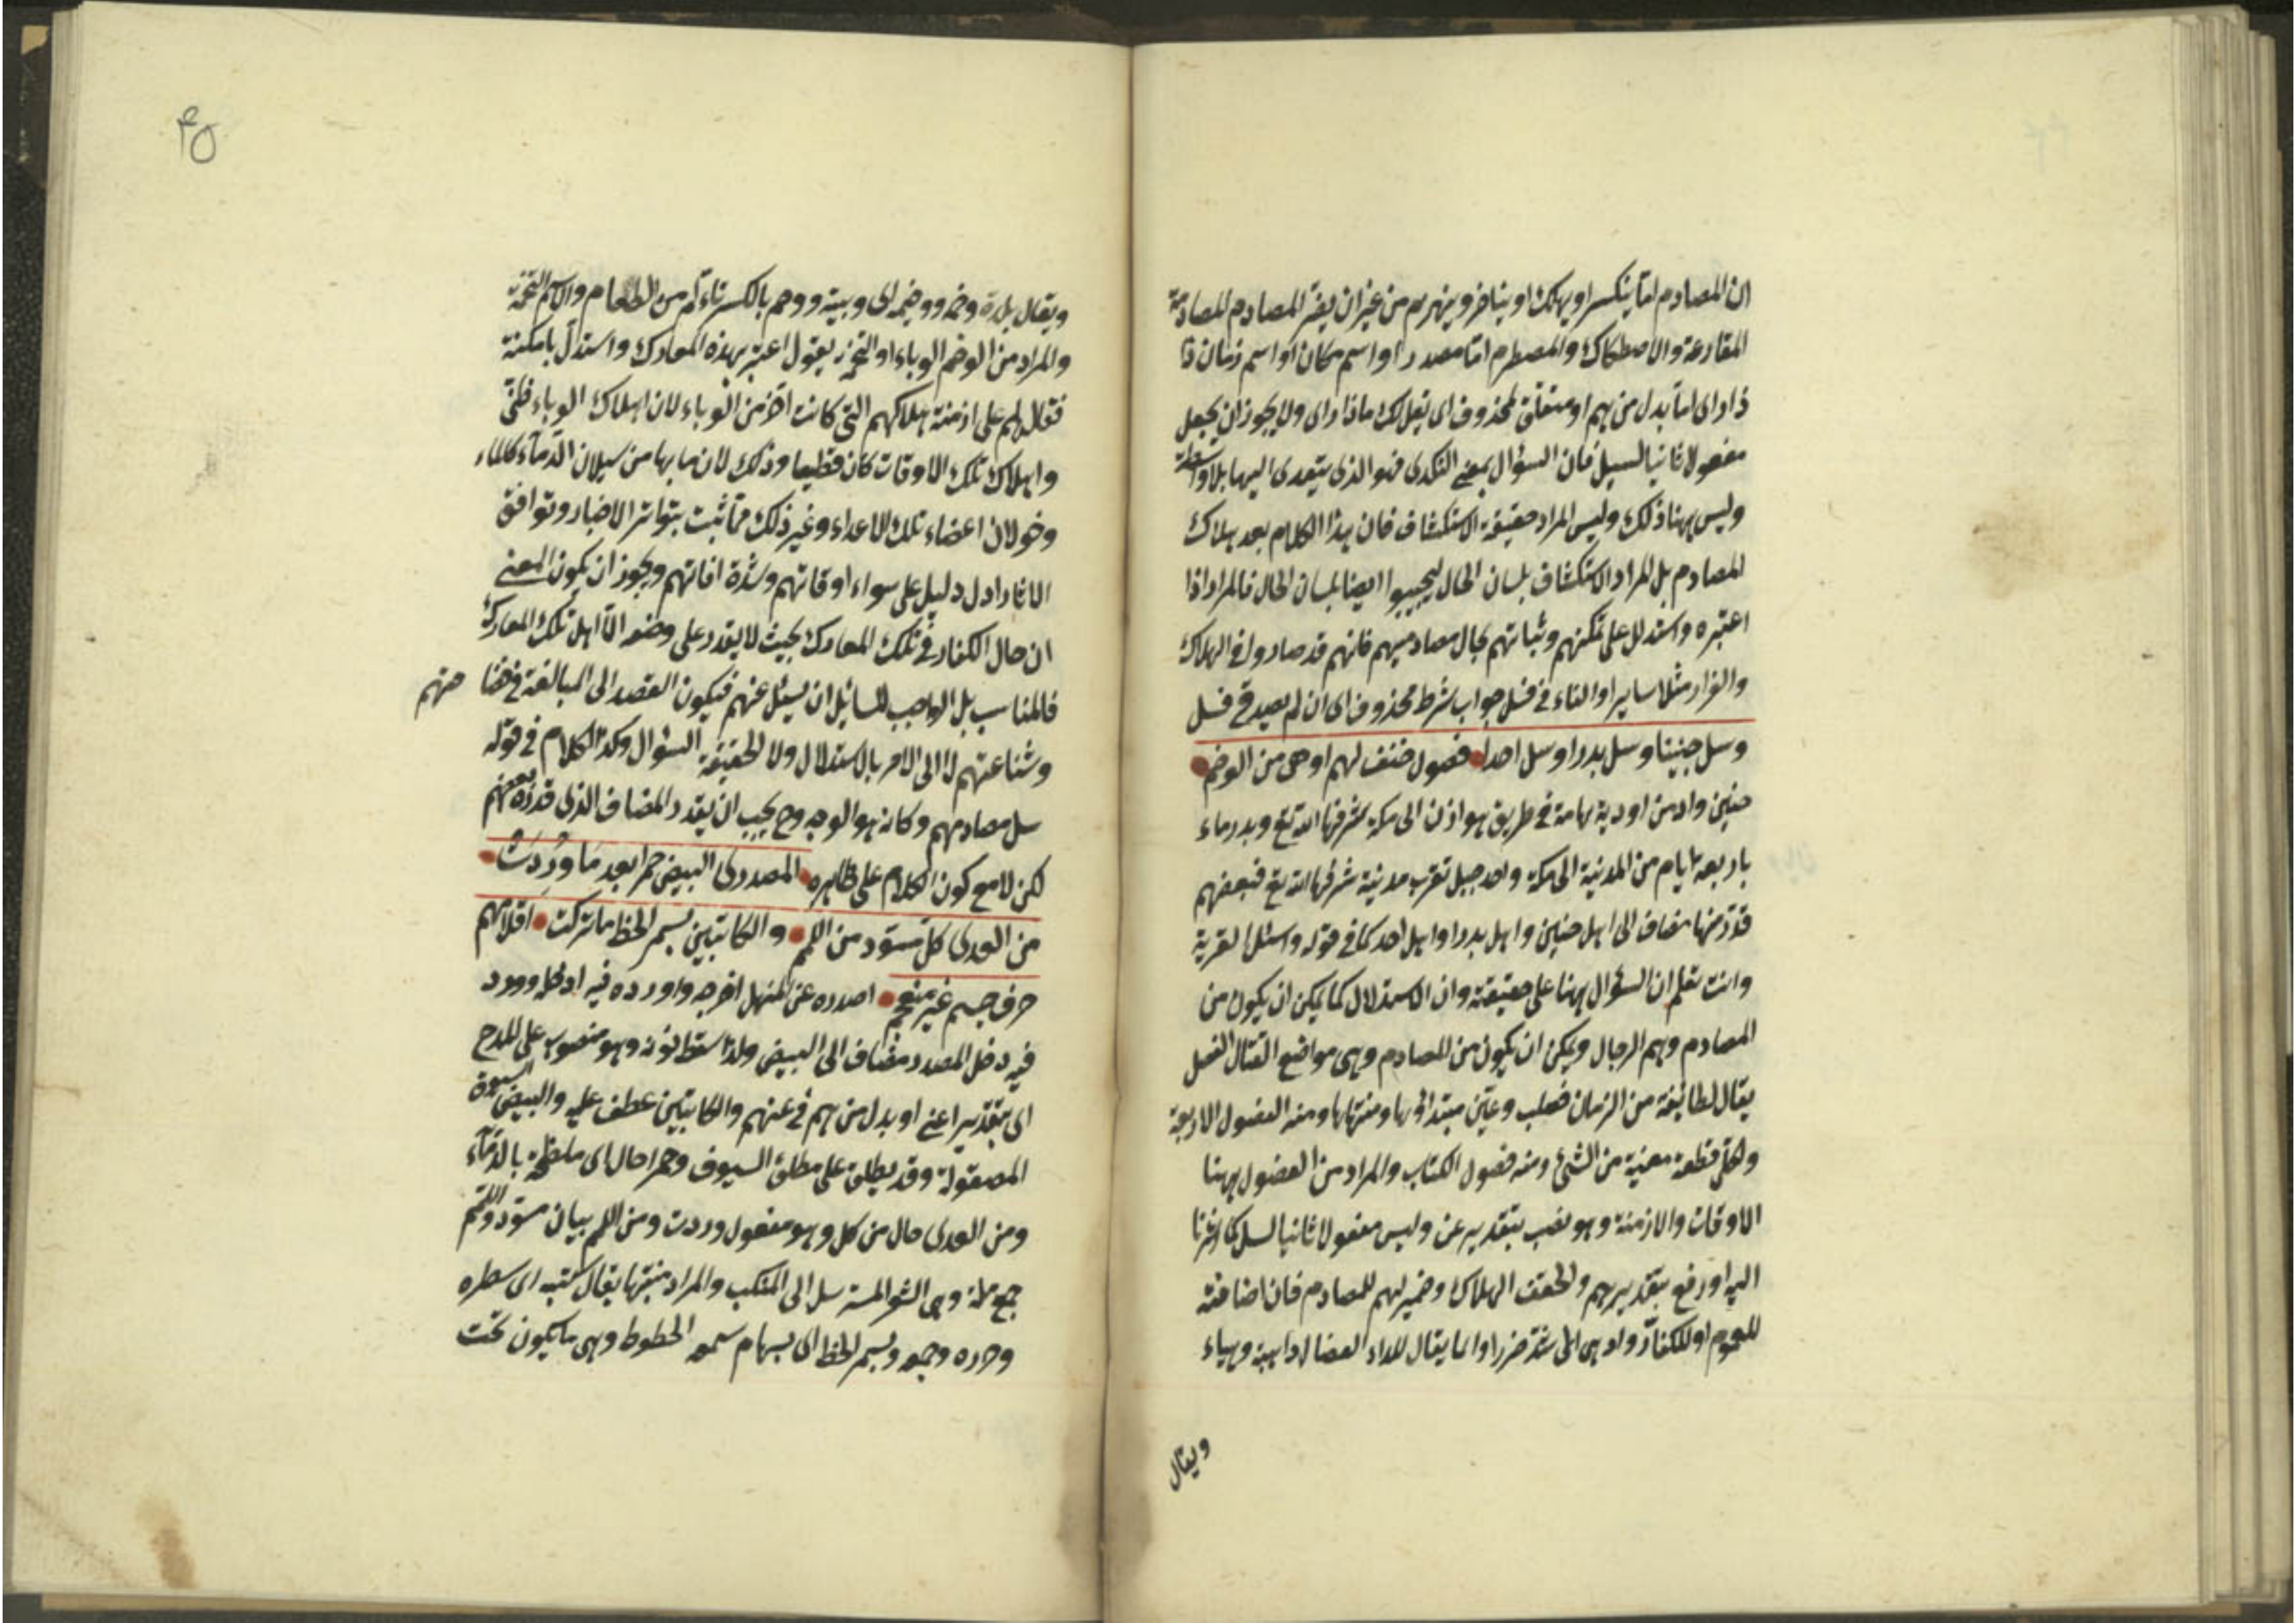 ان المصادم اما ينكسر او يهلك او يتأخر وينهزم من غير ان يضر للمصادم المصادمة
المقارعة والاصطكاك والمصطدم اما مصدر او اسم مكان او اسم زمان
ذا رأى اما بدل من هم او متعلق لمحذوف اى يقل لك ماذا رأى ولا يجوز ان يجعل
مفعولا ثانيا لسل فان السؤال بمعنى التكدى فهو الذى يتعدى اليها بلا واسطة
وليس ههنا ذلك وليس المراد حقيقة الاستكشاف فان هذا الكلام بعد هلاك
المصادم بل المراد الاستكشاف بلسان الحال ليجيبوا ايضا بلسان الحال فالمراد اذا
اعتبره واستدلل على تمكنهم وثباتهم بحال مصادميهم فانهم قد صاروا فى الهلاك
والفرار مثلا سايرا والفاء فى فسل جواب شرط محذوف اى ان لم يصدق فسل
وسل حنينا وسل بدرا وسل احدا فصول حتف لهم ادهى من الوخم
حنين واد من اودية تهامة فى طريق هوازن الى مكة شرفها الله تع وبدر ماء
باربعة ايام من المدينة الى مكة واحد جبل تقرب مدينة شرفها الله تع فبعضهم
قدر منها مضاف الى اهل حنين واهل بدر او اهل احد كما فى قوله واسئل القرية
وانت تعلم ان السؤال ههنا على حقيقته وان الاستدلال كما يمكن ان يكون من
المصادم وهم الرجال ويمكن ان يكون من المصادم وهى مواضع القتال الفصل
يقال لطائفة من الزمان فصلت وعين مبتدائها ومنتهاها ومنه الفصول الاربعة
ولكل قطعة معينة من الشئ ومنه فصول الكتاب والمراد من الفصول ههنا
الاوقات والازمنة وهو نصب بتقدير عن وليس مفعولا ثانيا لسل كما اشرنا
اليه او رفع بتقدير هم والحتف الهلاك وضمير لهم للمصادم فان اضافته
للعموم او للكفار وادهى اى اشد ضررا وانما يقال للداء العضال داهية وهياء
ويقال
ويقال بلدة وخمة ووخيمة اى وبيئة ووخم بالكسر تاءكم من الطعام والاسم التخمة
والمراد من الوخم الوباء او التخمة يقول اعتبر بهذه المعارك واستدل بامكنة
قتالهم على ازمنة هلاكهم التى كانت اضر من الوباء لان اهلاك الوباء ظنى
واهلاك تلك الاوقات كان قطعيا وذلك لان ما بها من سيلان الدماء كالماء
وخولان اعضاء تلك الاعداء وغير ذلك مما ثبت بتواتر الاخبار وتوافق
الاثار ادل دليل على سواء اوقاتهم وشدة افاتهم ويجوز ان يكون المعنى
ان حال الكفار فى تلك المعارك بحيث لا يقدر على وصفه الا اهل تلك المعارك
فالمناسب بل الواجب للسائل ان يسئل عنهم فيكون القصد الى المبالغة فى
وشناعتهم لا الى الامر بالاستدلال ولا لحقيقة السؤال وكذا الكلام فى قوله
سل مصادمهم وكانه هو الوجه وح يجب ان يقدر المضاف الذى قدره بعضهم
لكن لا مع كون الكلام على ظاهره المصدرى البيض حمرا بعد ما وردت
من العدى كل مسود من اللمم والكاتبين بسمر الخط ما تركت اقلامهم
حرف جسم غير منعجم اصدره عن المنهل اخرجه واورده فيه ادخله وورد
فيه دخل المصدر مضاف الى البيض ولذا سقط نونه وهو منصوب على المدح
اى بتقدير اعنى او بدل من هم فى عنهم والكاتبين عطف عليه والبيض السيوف
المصقولة وقد يطلق على مطلق السيوف وحمرا حال اى ملطخة بالدماء
ومن العدى حال من كل وهو مفعول وردت ومن اللمم بيان مسود واللمم
جمع لمة وهى الشعر المسترسل الى المنكب والمراد منبتها يقال كتبه اى سطره
وحرره وجمعه وبسمر الخط اى بسهام سمر الخطوط وهى ما يكون تحت